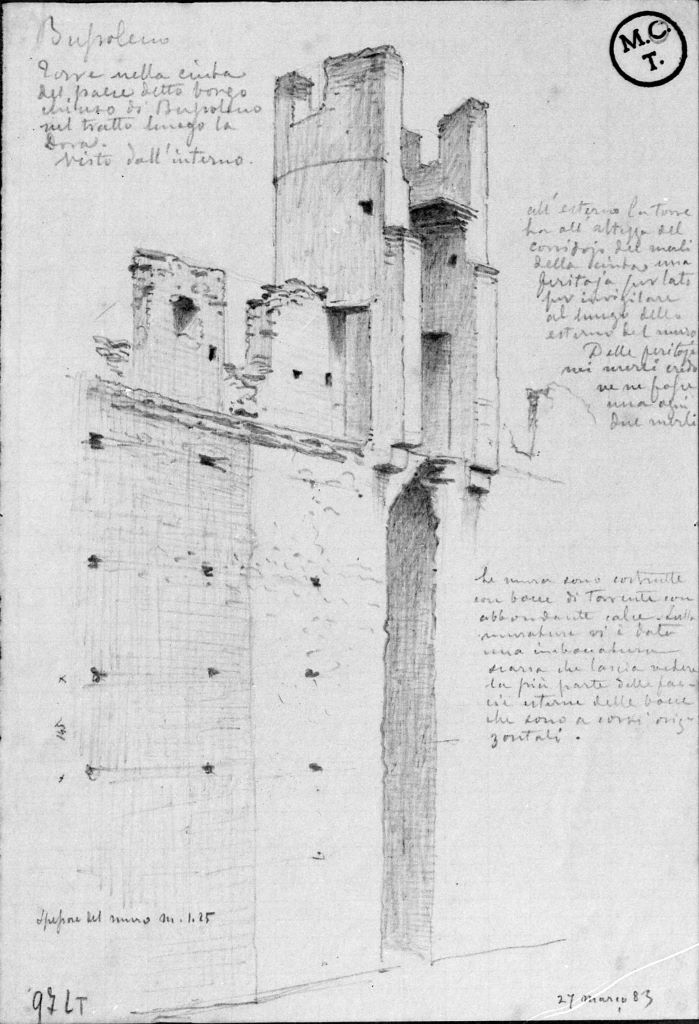 Bussoleno
Torre nella cinta
del paese detto borgo
chiuso di Bussoleno
nel tratto lungo la
Dora.
Visto dall'interno.
M.C.
T.
all'esterno la torre
ha all'altezza del
corridojo dei merli
della cinta una
feritoja per lato
per invigilare
al lungo dello
esterno del muro
Delle feritoje
nei merli credo
ve ne fosse
una ogni
due merli
Le mura sono costrutte
con bocce di Torrente con
abbondante calce. Sulla
muratura vi è data
una imboccatura
scarsa che lascia vedere
la più parte delle fac-
cie esterne delle bocce
che sono a corsi oriz-
zontali.
x
145
x
Spessore del muro m. 1.25
97 LT
27 março 83